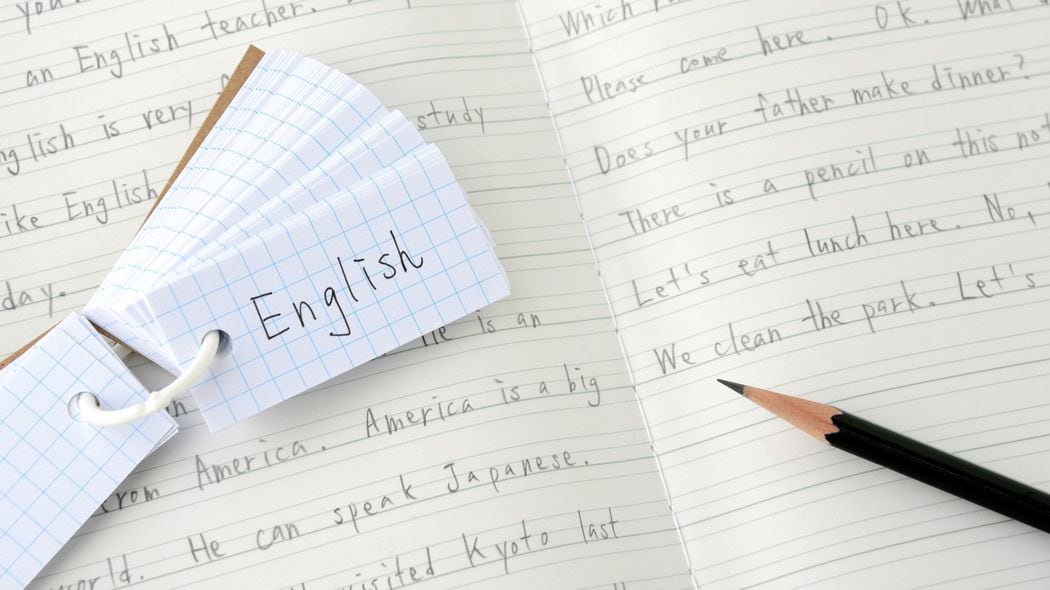 an English teacher.
is very
English
day.
study
English
is an
America. America is a big
He can speak Japanese.
visited Kyoto last
Which
Please come here. OK. What
Does your father make dinner?
There is a pencil on this
Let's eat lunch here. No,
We clean the park. Let's